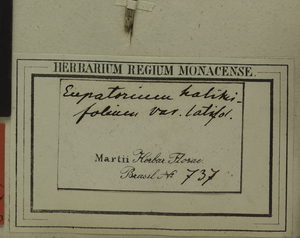 HERBARIUM REGIUM MONACENSE.
Eupatorium halimi-
folium var. latifol.
Martii Herbar. Florae
Brasil. No. 737